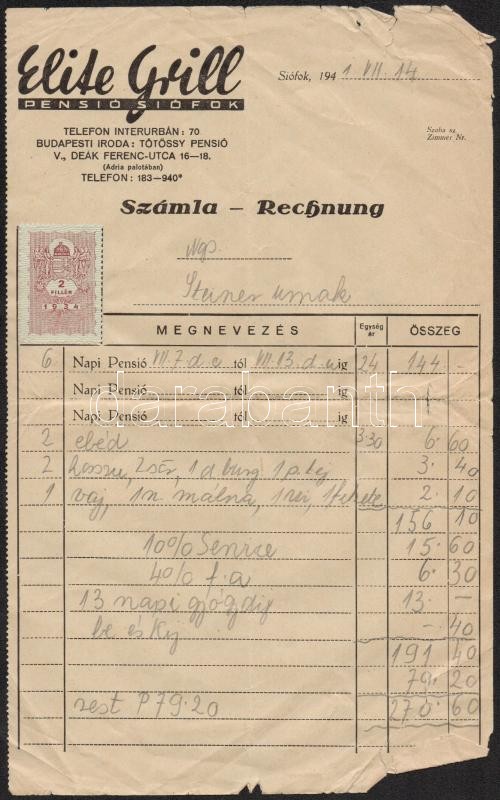 Elite Grill
PENSIÓ SIÓFOK
Siófok, 194 1 VII. 14
TELEFON INTERURBÁN: 70
BUDAPESTI IRODA: TÖTÖSSY PENSIÓ
V., DEÁK FERENC-UTCA 16—18.
(Adria palotában)
TELEFON: 183—940*
Szoba sz.
Zimmer Nr.
Számla – Rechnung
Ngs.
Steiner urnak
2
FILLÉR
1934
MEGNEVEZÉS Egység ár ÖSSZEG
6 Napi Pensió VII. 7. d. e. tól VII. 13. d. u. ig 24 144 -
Napi Pensió tól ig
Napi Pensió tól ig
darabanth
2 ebéd 3·30 6· 60
2 1 d burg 1 p. tej 3· 40
1 vaj, 1 málna, 1 fekete 2· 10
156 10
10% Service 15· 60
4% f. a 6· 30
13 napi gyógydíj 13· -
be és Kij -· 40
191 40
79· 20
rest P 79·20 270· 60